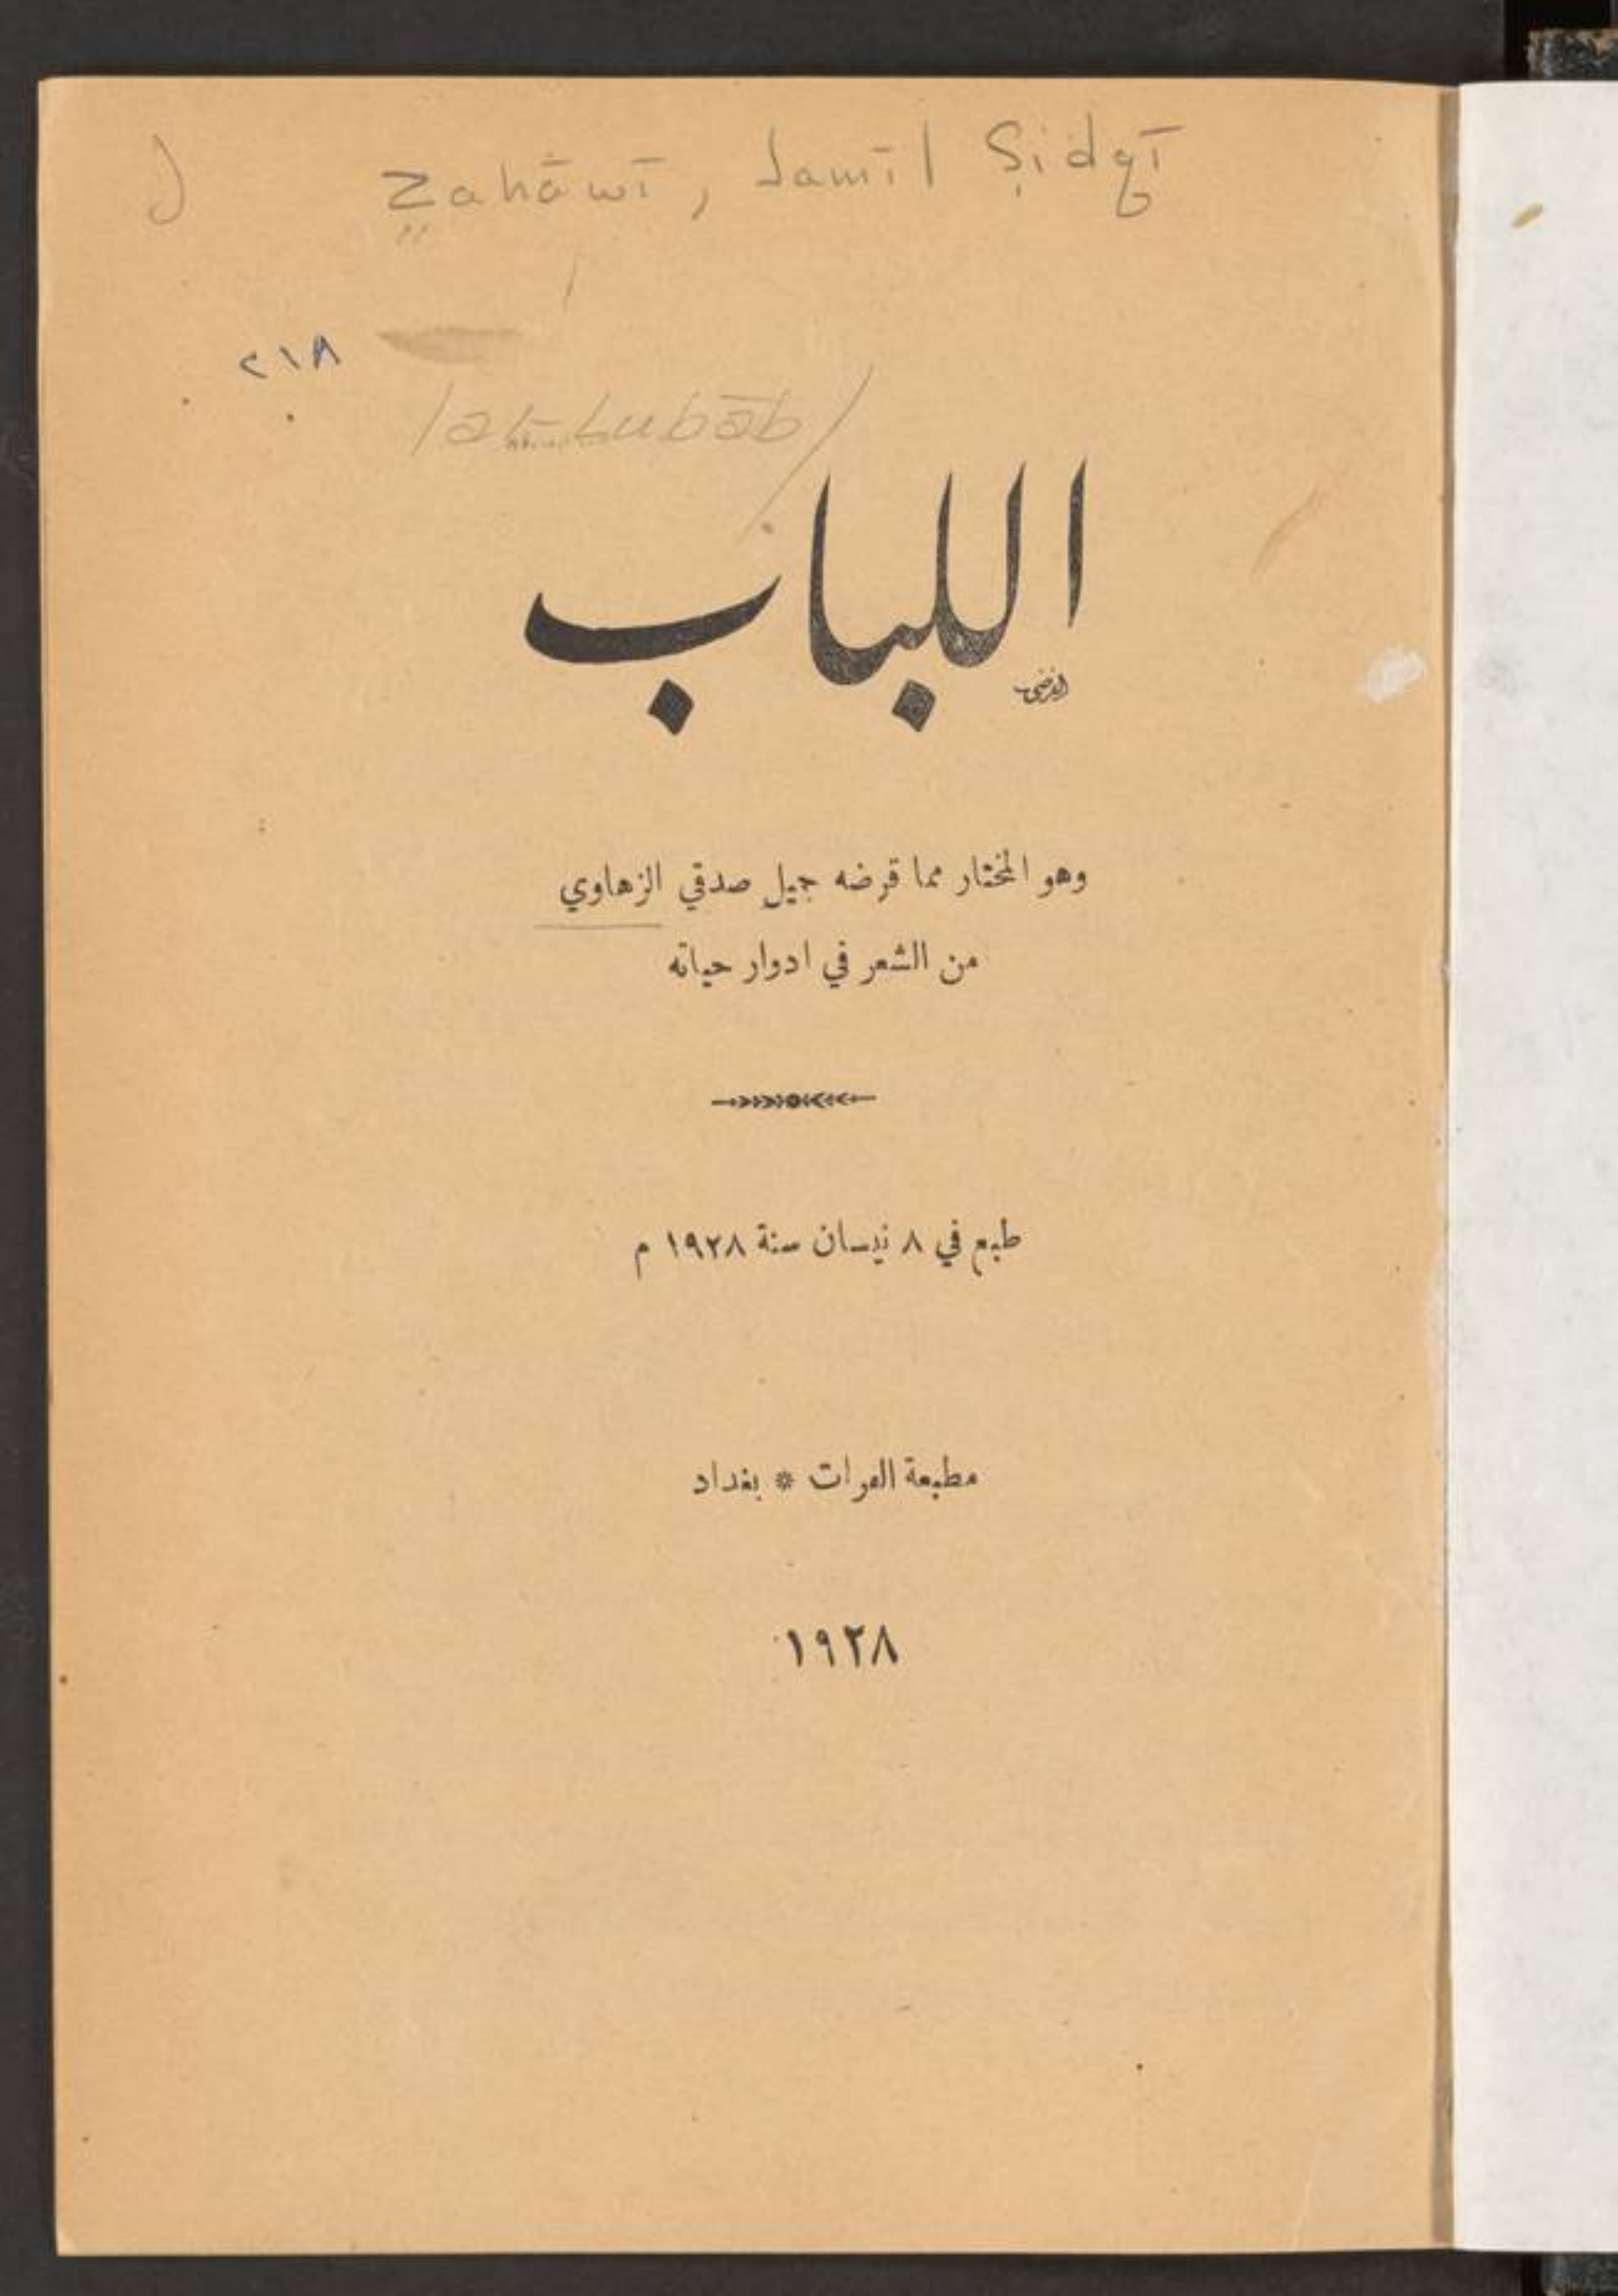 Zahāwī, Jamīl Ṣidqī
٢١٨
/al-Lubāb/
اللباب
وهو المختار مما قرضه جميل صدقي الزهاوي
من الشعر في ادوار حياته
طبع في ٨ نيسان سنة ١٩٢٨ م
مطبعة الفرات * بغداد
١٩٢٨